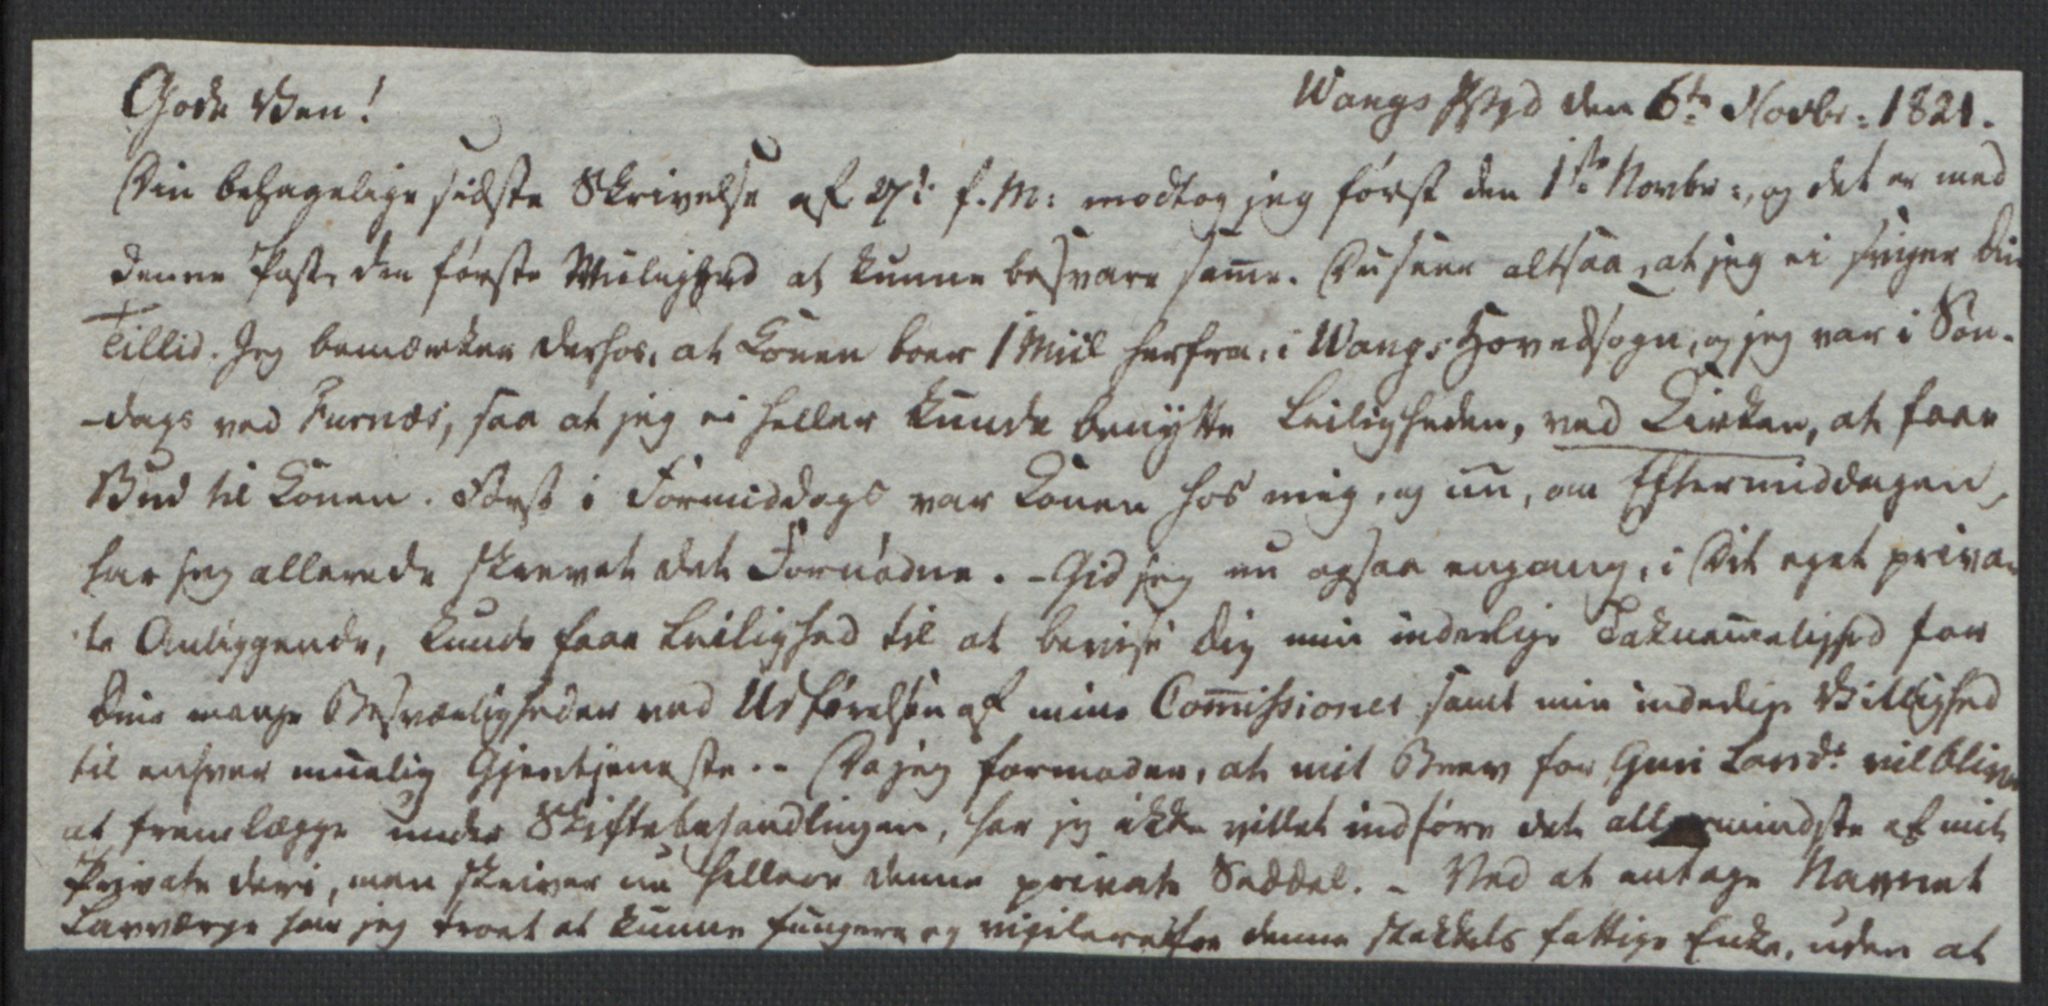 Gode Ven!
Wangs Pgd den 6te Novbr: 1821.
Din behagelige sidste Skrivelse af f. M: modtog jeg først den 1ste Novbr:, og det er med
denne Post den første Muelighed at kunne besvare samme. Du seer altsaa, at jeg ei sviger Din
Tillid. Jeg bemærker derhos, at Konen boer 1 Miil herfra, i Wangs Hovedsogn, og jeg var i Søn-
-dags ved Furnæs, saa at jeg ei heller kunde benytte Leiligheden, ved Kirken, at faae
Bud til Konen. Først i Formiddags var Konen hos mig, og nu, om Eftermiddagen,
har jeg allerede skrevet det Fornødne. - Gid jeg nu ogsaa engang, i Dit eget priva-
te Anliggende, kunde faae Leilighed til at bevise Dig min inderlige Taknemmelighed for
Dine mange Besværligheder ved Udførelsen af mine Commissioner samt min inderlige Villighed
til enhver muelig Gjentjeneste. - Da jeg formoder, at mit Brev for Guri Larsd. vil blive
at fremlægge under Skiftebehandlingen, har jeg ikke villet indføre det allermindste af mit
Private deri, men skriver nu hellere denne private Seddel. - Ved at antage Navnet
Lavværge har jeg troet at kunne fungere og vigilere for denne stakkels fattige Enke, uden at